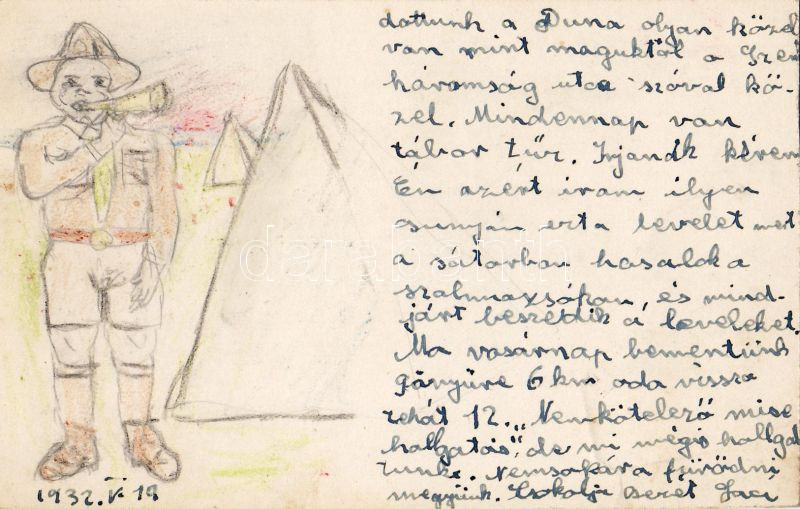 dottunk a Duna olyan közel
van mint maguktól a Szent
háromság utca szóval kö-
zel. Mindennap van
tábor tűz. Irjanak kérem
Én azért irom ilyen
csunyán ezt a levelet mert
a sátorban hasalok a
szalmazsákon, és mind-
járt beszédik a leveleket.
Ma vasárnap bementünk
gönyüre 6 km oda vissza
tehát 12. "Nemkötelező mise
hallgatás", de mi mégis hallgat
tunk. Nemsokára fürödni
megyünk. Csokolja szeret Laci
1932. V. 19
darabanth